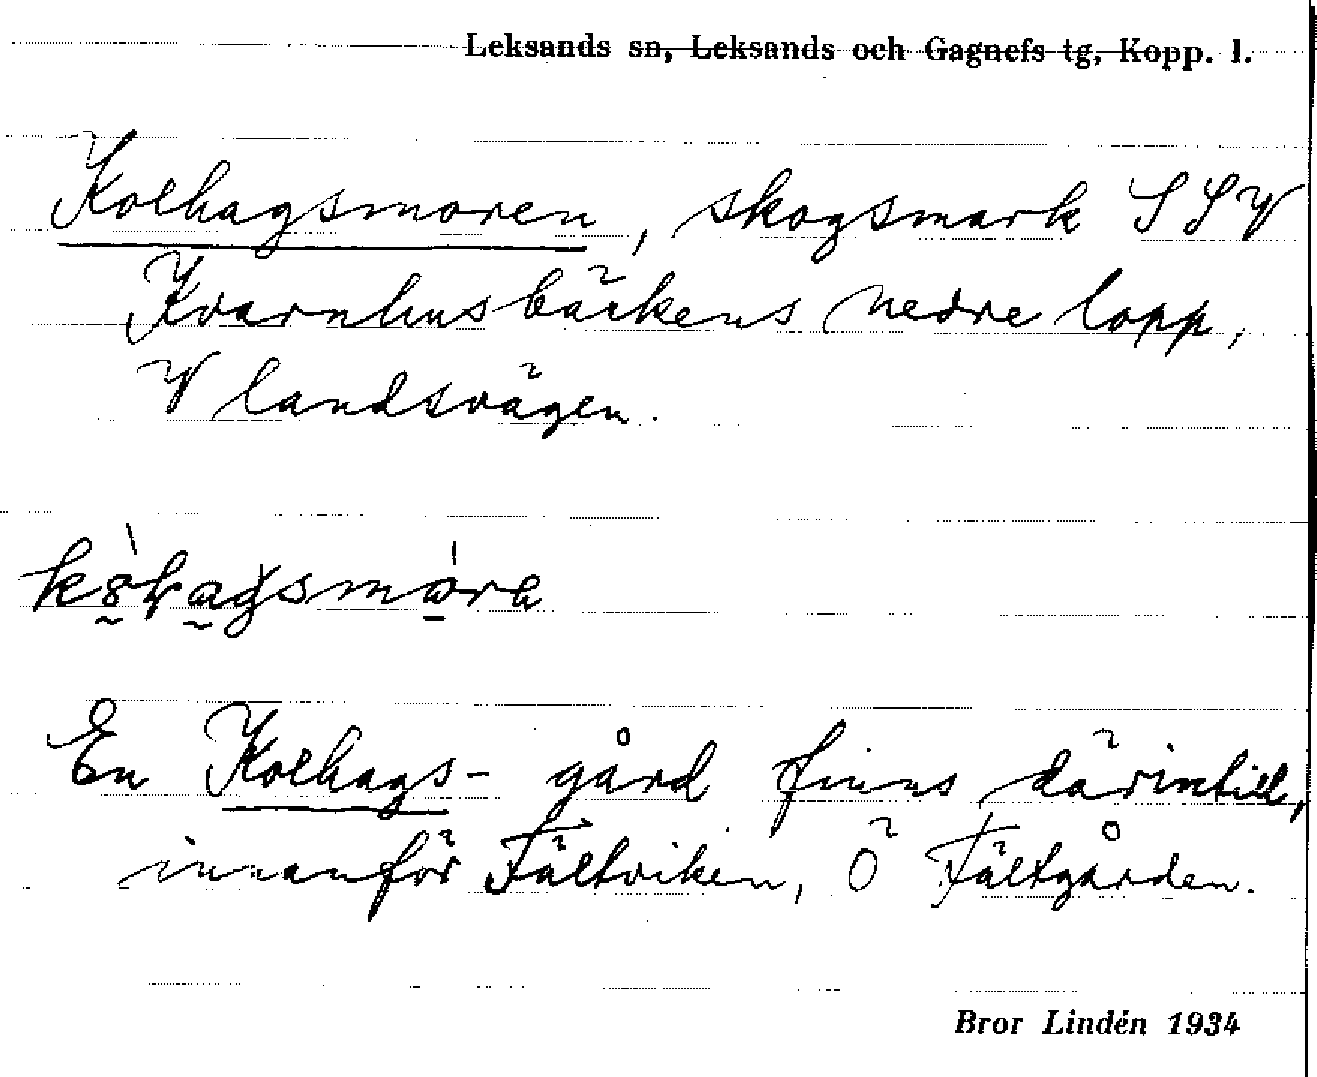 Leksands sn, Leksands och Gagnefs tg, Kopp. l.
Kolhagsmoren, skogsmark SSV
Kvarnhusbäckens nedre lopp,
V landsvägen.
En Kolhags- gård finns därintill,
innanför Fältviken, Ö Fältgården.
Bror Lindén 1934